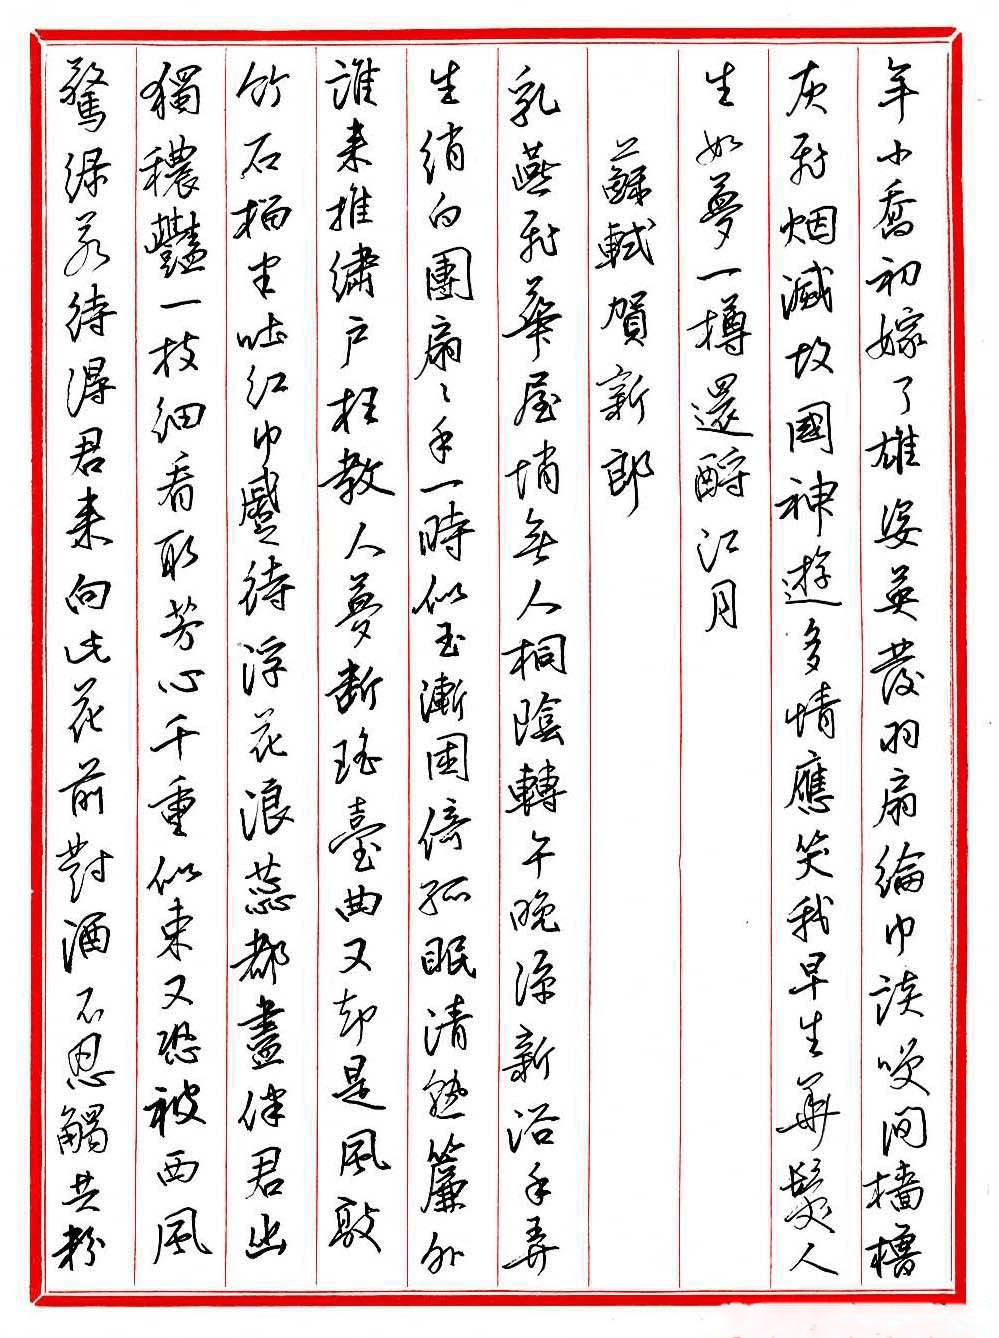 年小喬初嫁了雄姿英發羽扇綸巾談笑間檣櫓
灰飛烟滅故國神遊多情應笑我早生華髮人
生如夢一樽還酹江月
蘇軾賀新郎
乳燕飛華屋悄無人桐陰轉午晚涼新浴手弄
生綃白團扇〻手一時似玉漸困倚孤眠清熟簾外
誰來推繡户枉教人夢斷瑤臺曲又却是風敲
竹石榴半吐紅巾蹙待浮花浪蕊都盡伴君幽
獨穠豔一枝細看取芳心千重似束又恐被西風
驚綠若待得君來向此花前對酒不忍觸共粉